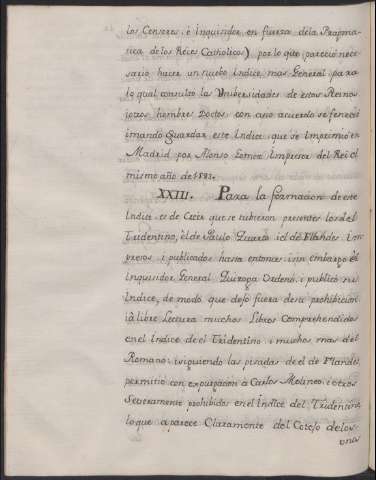 los Censores, è Inquisidor en fuerza dela Pragma-
tica de los Reies Catholicos) por lo qûe pareció nece-
sario hacer un nuebo Indice mas General para
lo qual consulto las Unibersidades de estos Reinos
i otros hombres Doctos con cuio acuerdo se feneció
i mandó Guardar este Indice que se imprimió en
Madrid por Alonso Gomez Impresor del Rei el
mismo año de 1583.
XXIII. Para la formacion de este
Indice es de Creer que se tubieron presentes los del
Tridentino, el de Paulo Quarto i el de Flandes im-
presos, i publicados hasta entonces: i sin embargo el
Inquisidor General Quiroga Ordenó, i publicó su
Indice, de modo que dejo fuera de su prohibicion
i à libre Lectura muchos Libros Comprehendidos
en el Indice de el Tridentino i muchos mas del
Romano: i siguiendo las pisadas de el de Flandes,
permitió con expurgacion a Carlos Molineo, i otros
Severamente prohibidos en el Indice del Tridentino,
lo que aparece Claramente del Cotejo de los
unos